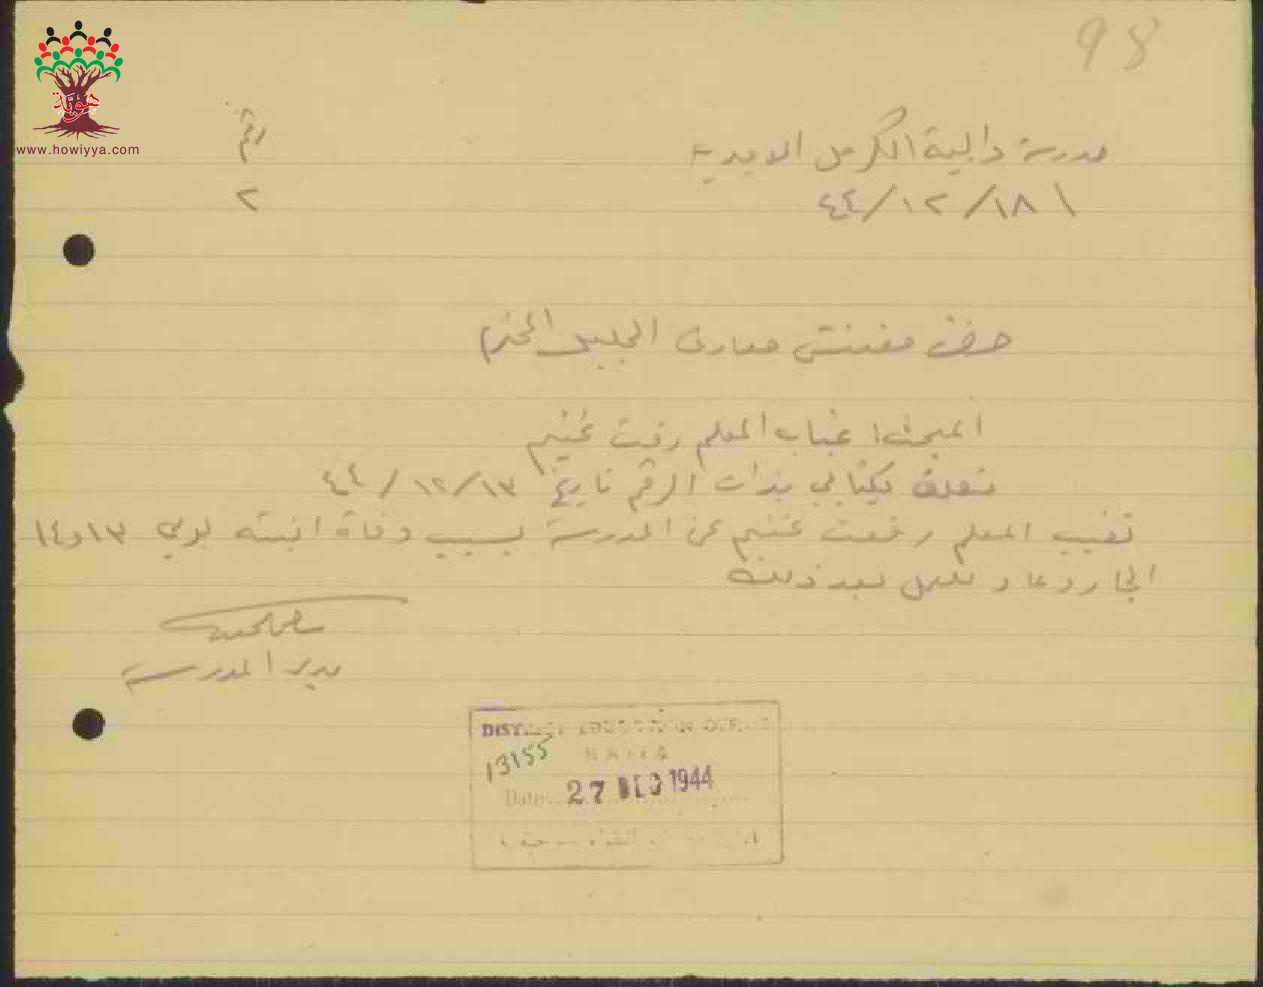 98
هوية
www.howiyya.com
مدرسة دالية الكرمل الاميرية
رقم
١٨/١٢/٤٤
٢
حضرة مفتش معارف الجليل المحترم
المبحث: غياب المعلم رفعت غنيم
بذات الرقم تاريخ ١٣/١٢/٤٤
تغيب المعلم رفعت غنيم عن المدرسة بسبب وفاة ابنته يومي ١٣ و١٤
الجاري وعاد للعمل بعد ذلك
مدير المدرسة
DISTRICT EDUCATION OFFICE
HAIFA
13155
Date 27 DEC 1944